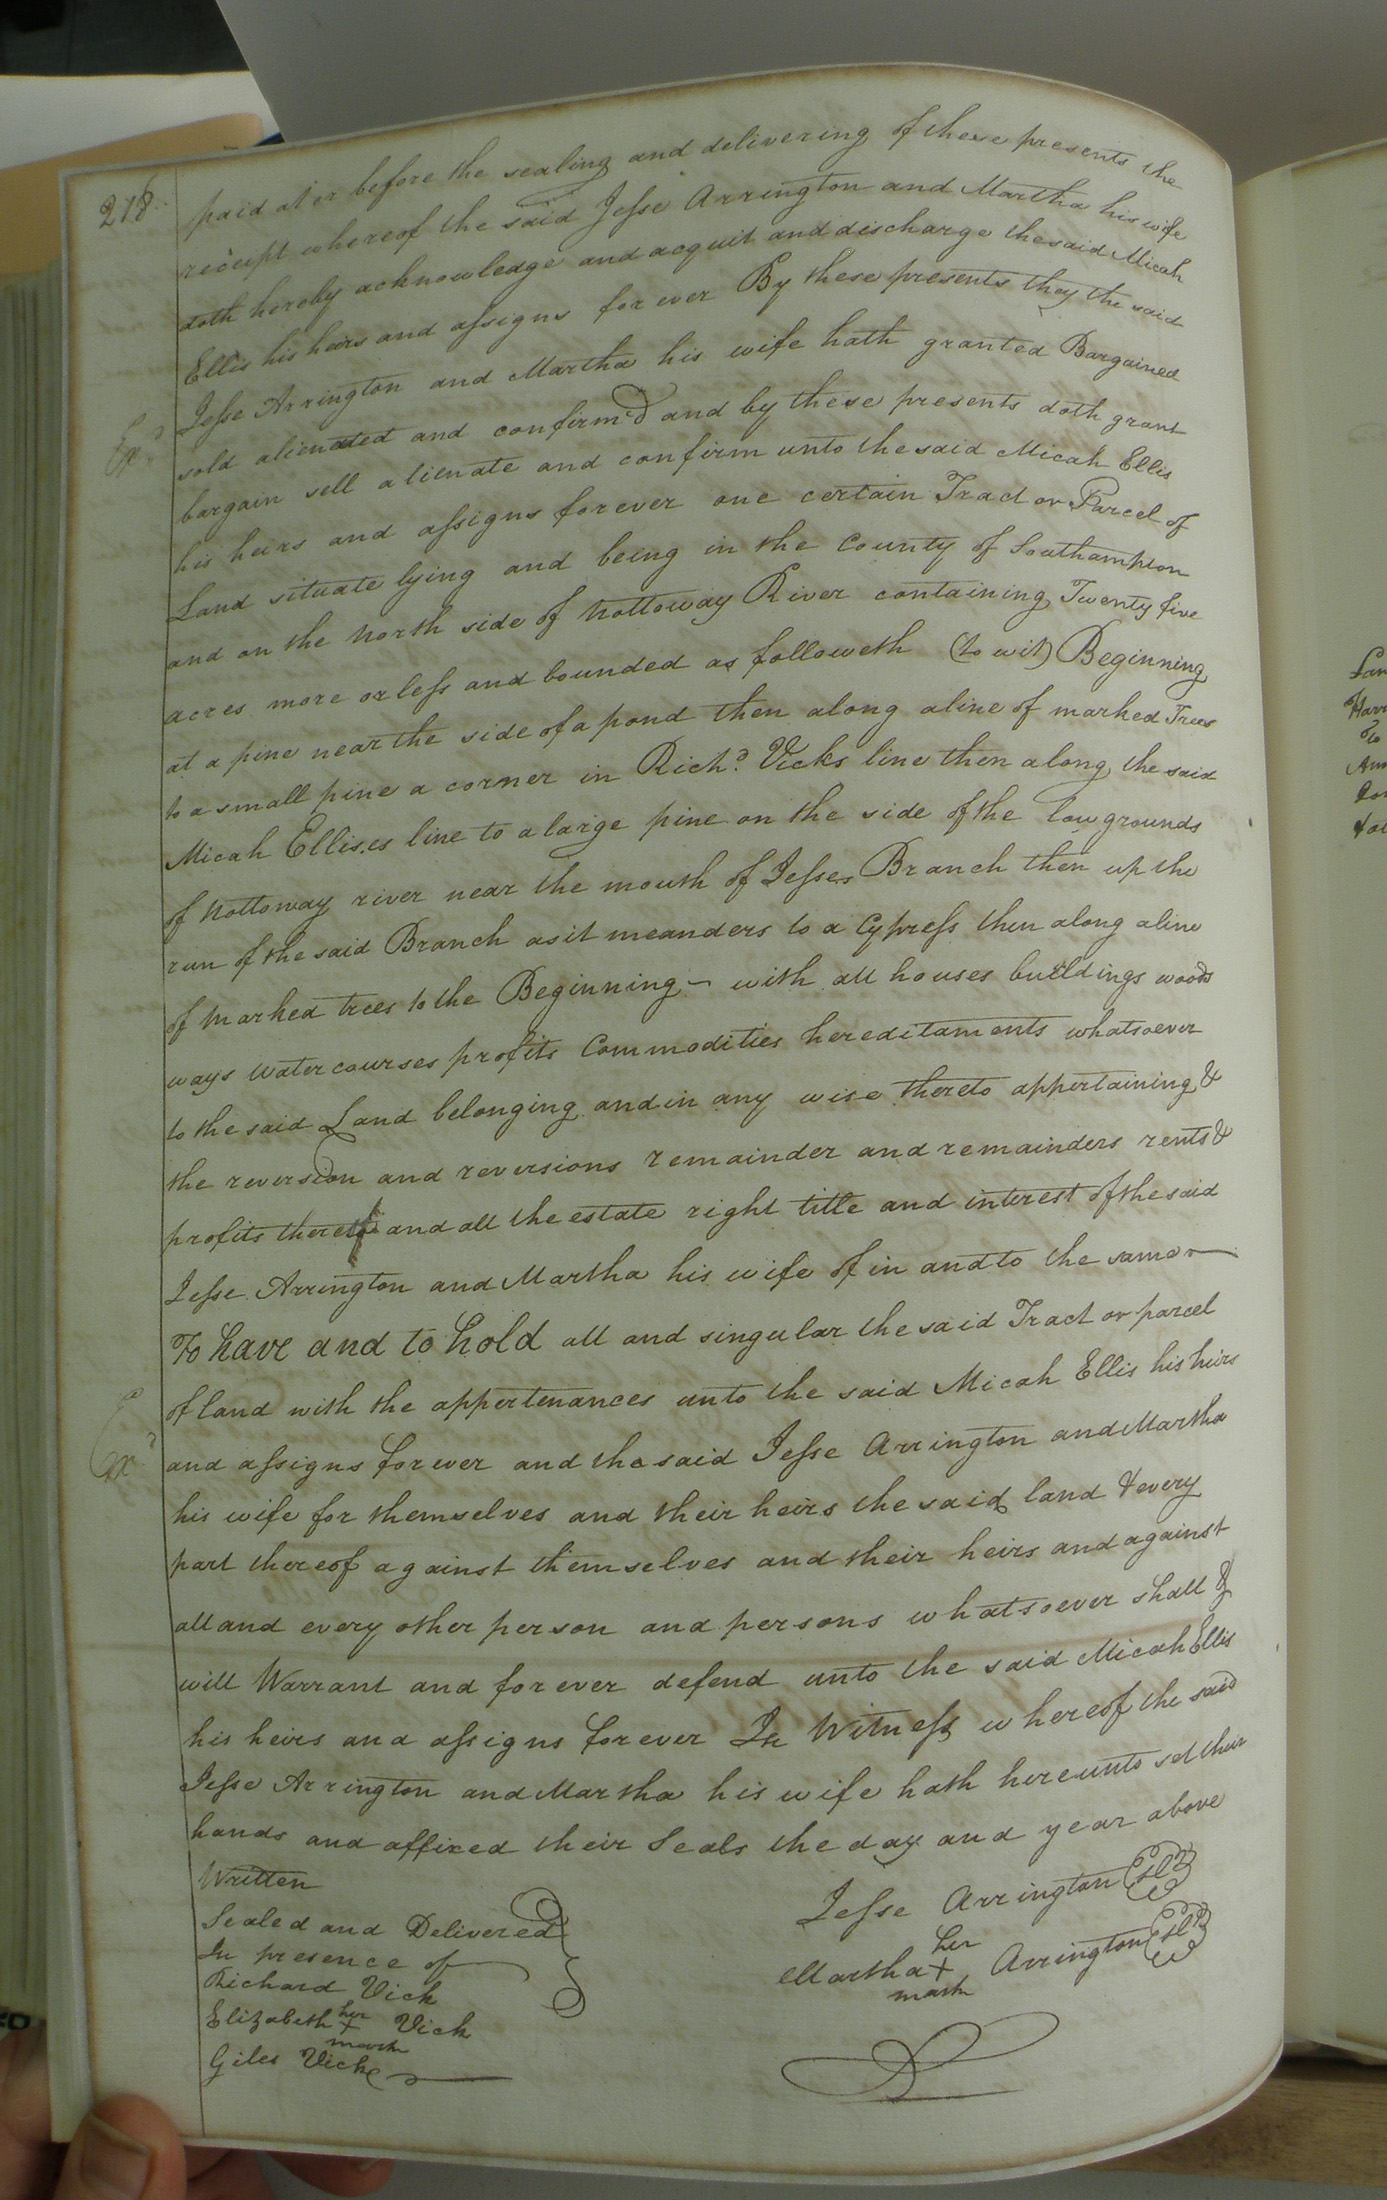 218
paid at or before the sealing and delivering of these presents the
receipt whereof the said Jesse Arrington and Martha his wife
doth hereby acknowledge and acquit and discharge the said Micah
Ellis his heirs and assigns for ever By these presents they the said
Jesse Arrington and Martha his wife hath granted Bargained
sold alienated and confirm'd and by these presents doth grant
bargain sell alienate and confirm unto the said Micah Ellis
his heirs and assigns forever one certain Tract or Parcel of
Land situate lying and being in the County of Southampton
and on the North side of Nottoway River containing Twenty five
acres more or less and bounded as followeth (to wit) Beginning
at a pine near the side of a pond then along a line of marked Trees
to a small pine a corner in Richd. Vicks line then along the said
Micah Ellis.es line to a large pine on the side of the low grounds
of Nottoway river near the mouth of Jesses Branch then up the
run of the said Branch as it meanders to a Cypress then along a line
of marked trees to the Beginning with all houses buildings woods
ways water courses profits Commodities hereditaments whatsoever
to the said Land belonging and in any wise thereto appertaining &
the reversion and reversions remainder and remainders rents &
profits thereof and all the estate right title and interest of the said
Jesse Arrington and Martha his wife of in and to the same
To have and to hold all and singular the said Tract or parcel
of land with the appertenances unto the said Micah Ellis his heirs
and assigns forever and the said Jesse Arrington and Martha
his wife for themselves and their heirs the said land & every
part thereof against themselves and their heirs and against
all and every other person and persons whatsoever shall &
will Warrant and forever defend unto the said Micah Ellis
his heirs and assigns forever In Witness whereof the said
Jesse Arrington and Martha his wife hath hereunto set their
hands and affixed their Seals the day and year above
Written
Jesse Arrington
Sealed and Delivered
In presence of
her
Martha + Arrington
mark
Richard Vick
Elizabeth her + mark Vick
Giles Vick